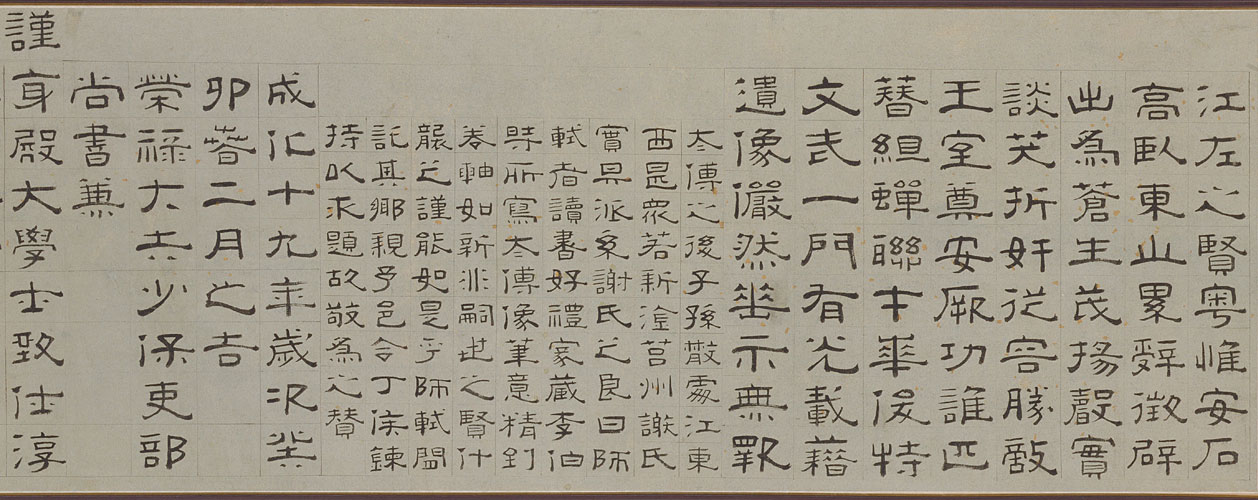 江左之賢粤惟安石
高臥東山累辭徵辟
出為蒼生茂揚聲實
談笑折奸從容勝敵
王室奠安厥功誰匹
簪組蟬聯才華俊特
文武一門有光載藉
遺像儼然垂示無斁
太傅之後子孫散處江東
西是眾若新淦莒州謝氏
實派系謝氏之良曰師
軾者讀書好禮家藏李伯
時所寫太傅像筆意精到
卷軸如新非嗣世之賢什
襲之謹能如是乎師軾間
託其鄉親予邑令丁侯鍊
持以求題故敬為之贊
成化十九年歲次癸
卯春二月之吉
榮祿大夫少保吏部
尚書兼
謹身殿大學士致仕淳